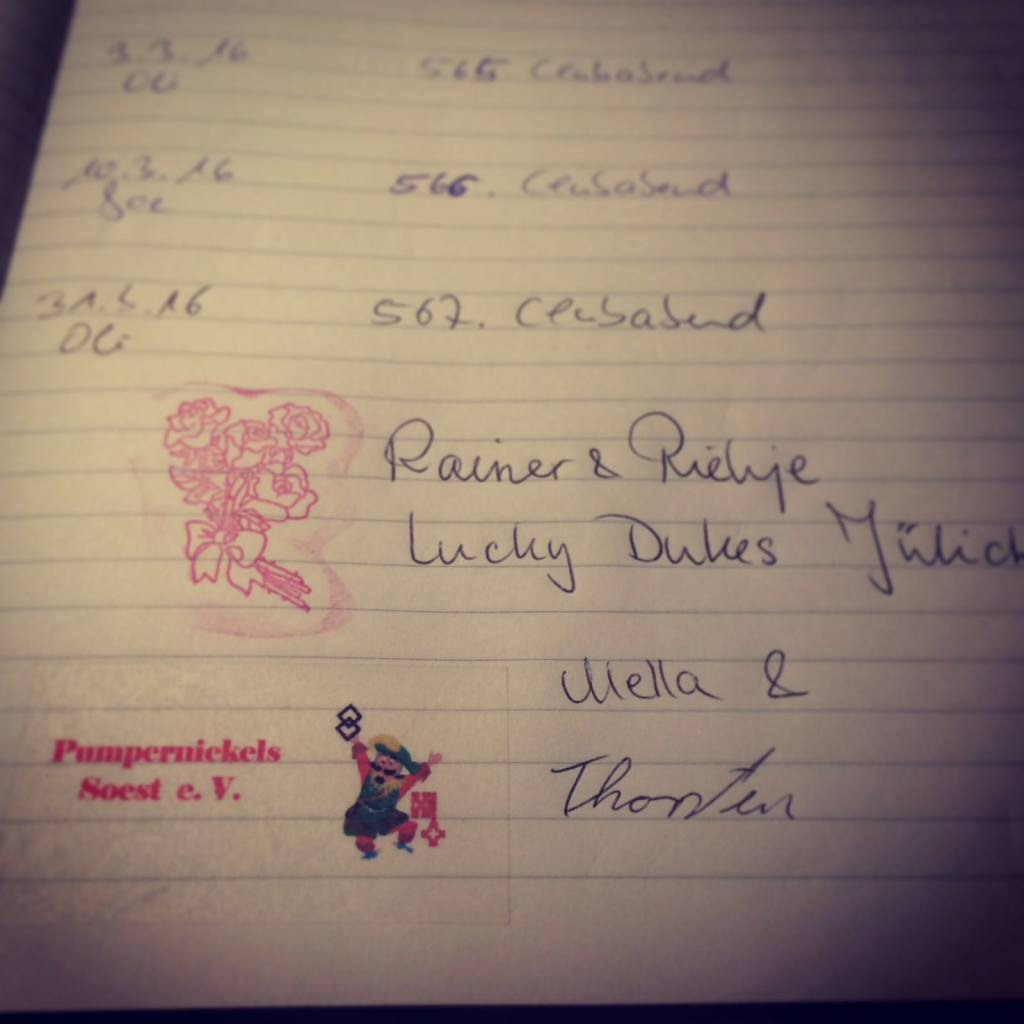 3.3.16 565 Clubabend
Oli
10.3.16 566. Clubabend
Joe
31.3.16 567. Clubabend
Oli
Rainer & Riekje
Lucky Dukes Jülich
Mella &
Thorsten
Pumpernickels
Soest e. V.